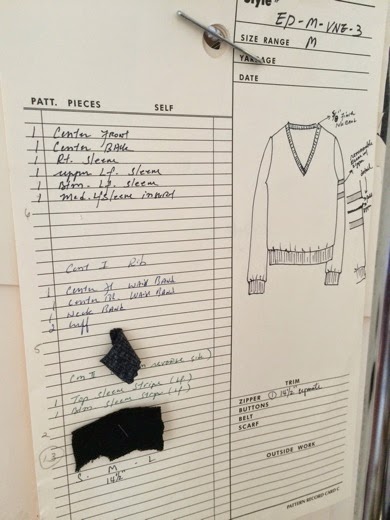 Style"
ED-M-VNE-3
SIZE RANGE M
YARDAGE
DATE
PATT. PIECES SELF
1 Center Front
1 Center Back
1 Rt. sleeve
1 upper Lf. sleeve
1 Btm. Lf. sleeve
1 Mid. Lf sleeve insert
6
Cont I Rib
1 Center Ft. Waist Band
1 Center Bk. Waist Band
1 Neck Band
2 Cuff
5
reverse side)
1 Top sleeve stripe (Lf.)
1 Btm sleeve stripe (Lf.)
2
13
S. - M - L
14½"
TRIM
ZIPPER ① 14½" separate
BUTTONS
BELT
SCARF
OUTSIDE WORK
PATTERN RECORD CARD C